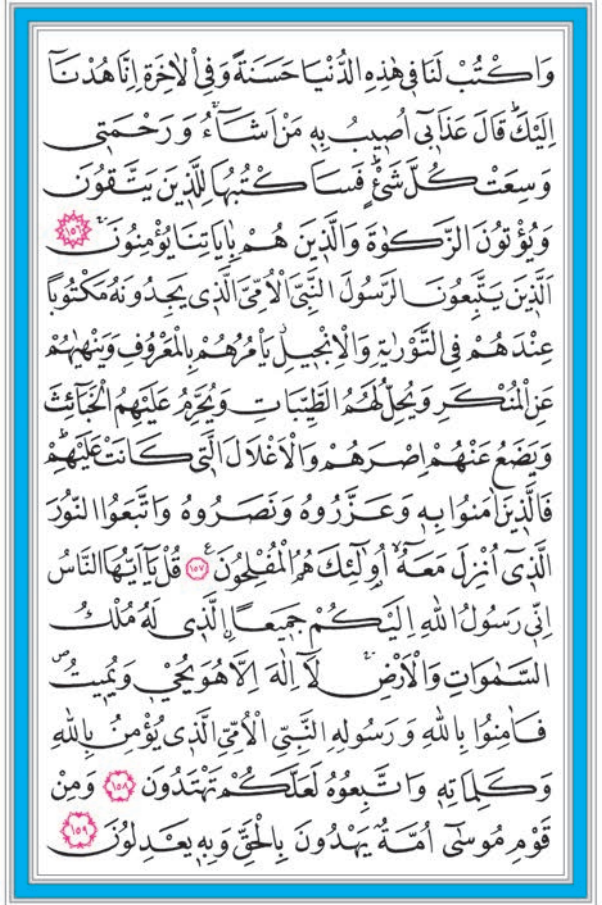 وَاكْتُبْ لَنَا فِي هٰذِهِ الدُّنْيَا حَسَنَةً وَفِي الْاٰخِرَةِ اِنَّا هُدْنَٓا
اِلَيْكَۜ قَالَ عَذَابٖٓي اُصٖيبُ بِهٖ مَنْ اَشَٓاءُۚ وَرَحْمَتٖي
وَسِعَتْ كُلَّ شَيْءٍۜ فَسَاَكْتُبُهَا لِلَّذٖينَ يَتَّقُونَ
وَيُؤْتُونَ الزَّكٰوةَ وَالَّذٖينَ هُمْ بِاٰيَاتِنَا يُؤْمِنُونَۚ ١٥٦
اَلَّذٖينَ يَتَّبِعُونَ الرَّسُولَ النَّبِيَّ الْاُمِّيَّ الَّذٖي يَجِدُونَهُ مَكْتُوبًا
عِنْدَهُمْ فِي التَّوْرٰيةِ وَالْاِنْجٖيلِۘ يَأْمُرُهُمْ بِالْمَعْرُوفِ وَيَنْهٰيهُمْ
عَنِ الْمُنْكَرِ وَيُحِلُّ لَهُمُ الطَّيِّبَاتِ وَيُحَرِّمُ عَلَيْهِمُ الْخَبَٓائِثَ
وَيَضَعُ عَنْهُمْ اِصْرَهُمْ وَالْاَغْلَالَ الَّتٖي كَانَتْ عَلَيْهِمْۜ
فَالَّذٖينَ اٰمَنُوا بِهٖ وَعَزَّرُوهُ وَنَصَرُوهُ وَاتَّبَعُوا النُّورَ
الَّذٖٓي اُنْزِلَ مَعَهُٓۙ اُو۬لٰٓئِكَ هُمُ الْمُفْلِحُونَ۟ ١٥٧ قُلْ يَٓا اَيُّهَا النَّاسُ
اِنّٖي رَسُولُ اللّٰهِ اِلَيْكُمْ جَمٖيعًاۨ الَّذٖي لَهُ مُلْكُ
السَّمٰوَاتِ وَالْاَرْضِۚ لَٓا اِلٰهَ اِلَّا هُوَ يُحْيٖ وَيُمٖيتُࣕ
فَاٰمِنُوا بِاللّٰهِ وَرَسُولِهِ النَّبِيِّ الْاُمِّيِّ الَّذٖي يُؤْمِنُ بِاللّٰهِ
وَكَلِمَاتِهٖ وَاتَّبِعُوهُ لَعَلَّكُمْ تَهْتَدُونَ ١٥٨ وَمِنْ
قَوْمِ مُوسٰٓى اُمَّةٌ يَهْدُونَ بِالْحَقِّ وَبِهٖ يَعْدِلُونَ ١٥٩